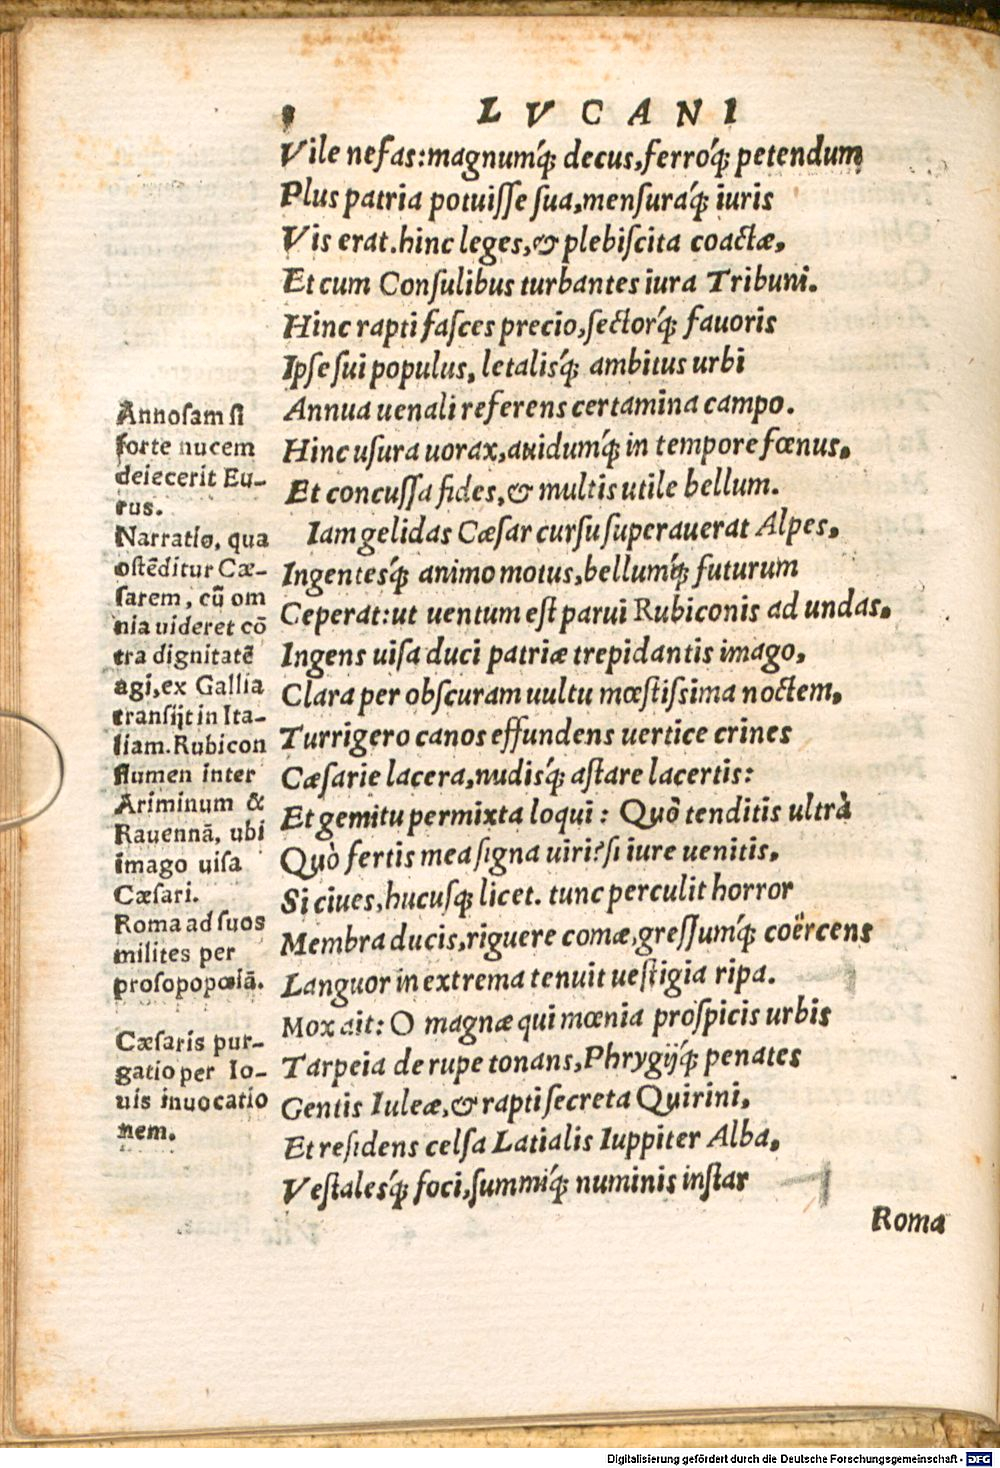 8 LVCANI
Vile nefas:magnumq́; decus,ferroq́; petendum
Plus patria potuiſſe ſua,menſuraq́; iuris
Vis erat.hinc leges,& plebiſcita coactæ,
Et cum Conſulibus turbantes iura Tribuni.
Hinc rapti faſces precio,ſectorq́; fauoris
Ipſe ſui populus, letalisq́; ambitus urbi
Annua uenali referens certamina campo.
Hinc uſura uorax,auidumq́; in tempore fœnus,
Et concuſſa fides,& multis utile bellum.
Iam gelidas Cæſar curſu ſuperauerat Alpes,
Ingentesq́; animo motus,bellumq́; futurum
Ceperat:ut uentum eſt parui Rubiconis ad undas,
Ingens uiſa duci patriæ trepidantis imago,
Clara per obſcuram uultu mœſtiſsima noctem,
Turrigero canos effundens uertice crines
Cæſarie lacera,nudisq́; aſtare lacertis:
Et gemitu permixta loqui: Quò tenditis ultrà
Quò fertis mea ſigna uiri?ſi iure uenitis,
Si ciues,hucuſq; licet. tunc perculit horror
Membra ducis,riguere comæ,greſſumq́; coërcens
Languor in extrema tenuit ueſtigia ripa.
Mox ait: O magnæ qui mœnia proſpicis urbis
Tarpeia de rupe tonans,Phrygijq́; penates
Gentis Iuleæ,& rapti ſecreta Quirini,
Et reſidens celſa Latialis Iuppiter Alba,
Veſtalesq́; foci,ſummiq́; numinis inſtar
Roma
Annoſam ſi
forte nucem
deiecerit Eu-
rus.
Narratio, qua
oſtēditur Cæ-
ſarem, cū om
nia uideret cō
tra dignitatē
agi,ex Gallia
tranſijt in Ita-
liam.Rubicon
flumen inter
Ariminum &
Rauennā, ubi
imago uiſa
Cæſari.
Roma ad ſuos
milites per
proſopopœiā.
Cæſaris pur-
gatio per Io-
uis inuocatio
nem.
Digitalisierung gefördert durch die Deutsche Forschungsgemeinschaft - DFG